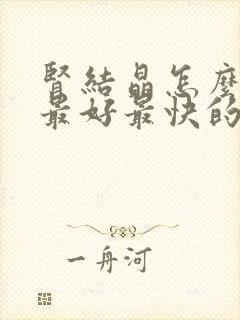 腎結晶怎麼
最好最快的
一舟河